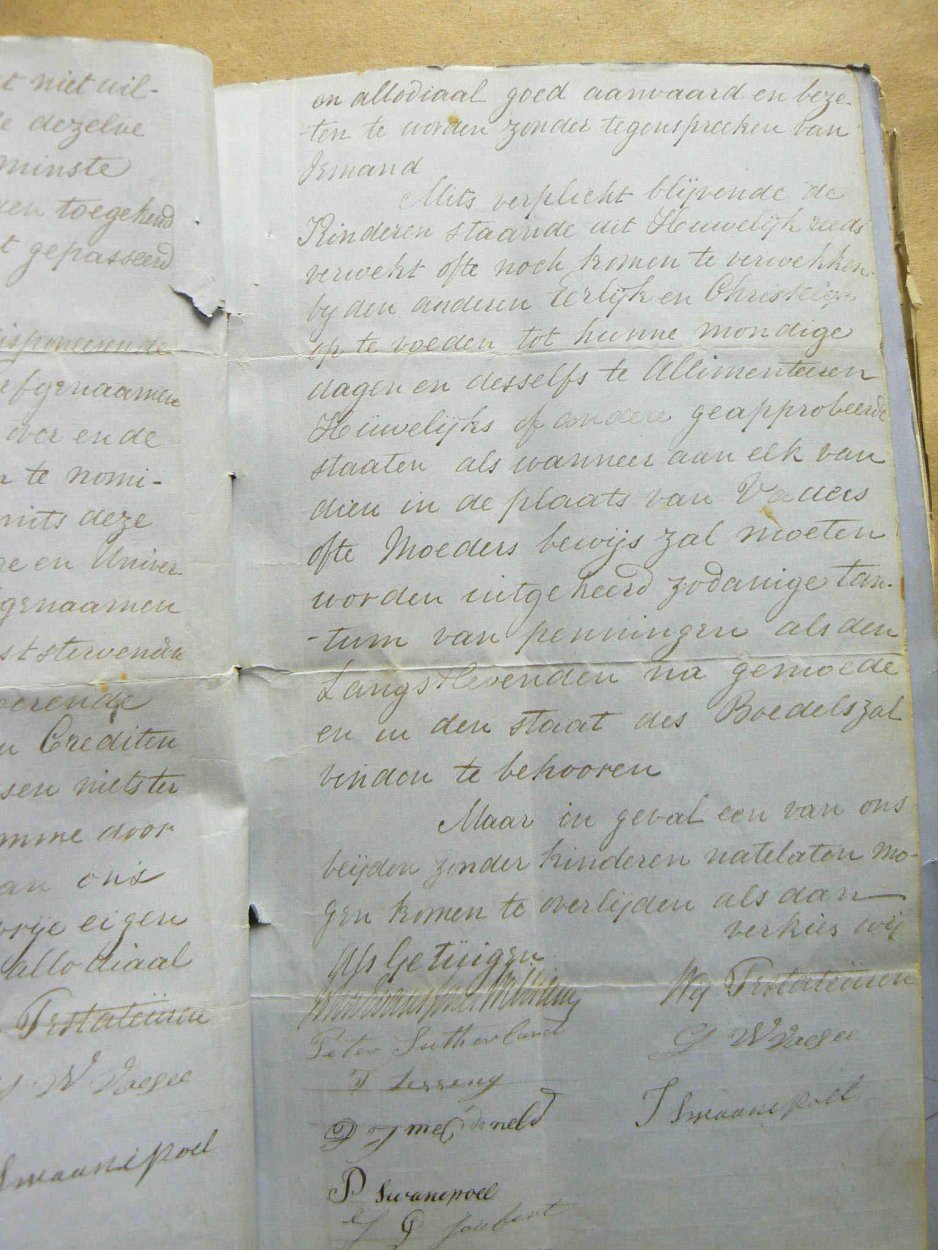 t niet wil-
le dezelve
minste
den toegekend
t gepasseerd
disponeerende
rfgenaamen
over en de
n te nomi-
mits deze
ge en Univer-
genaamen
st stervende
veerende
n Crediten
sen niets ter
omme door
an ons
vrije eigen
allodiaal
Testateuren
W
Swaanepoel
on allodiaal goed aanvaard en beze-
ten te worden zonder tegenspreeken van
Iemand
Mits verplicht blijvende de
Kinderen staande dit Heuwelijk reeds
verwekt ofte noch komen te verwekken
by den anderen Eerlijk en Christelijk
op te voeden tot hunne mondige
dagen en desselfs te Allimenteeren
Heuwelijks of andere geapprobeerde
staaten als wanneer aan elk van
dien in de plaats van Vaders
ofte Moeders bewijs zal moeten
worden uitgekeerd zodanige tan-
-tum van penningen als den
Langstlevenden na gemoede
en in den staat des Boedels zal
vinden te behooren
Maar in geval een van ons
beijden zonder kinderen natelaten mo-
gen komen te overlijden als dan
verkies wij
Als Getuigen
Wij Testateuren
Peter Sutherland
W
P Swanepoel
J Swaanepoel
G Joubert